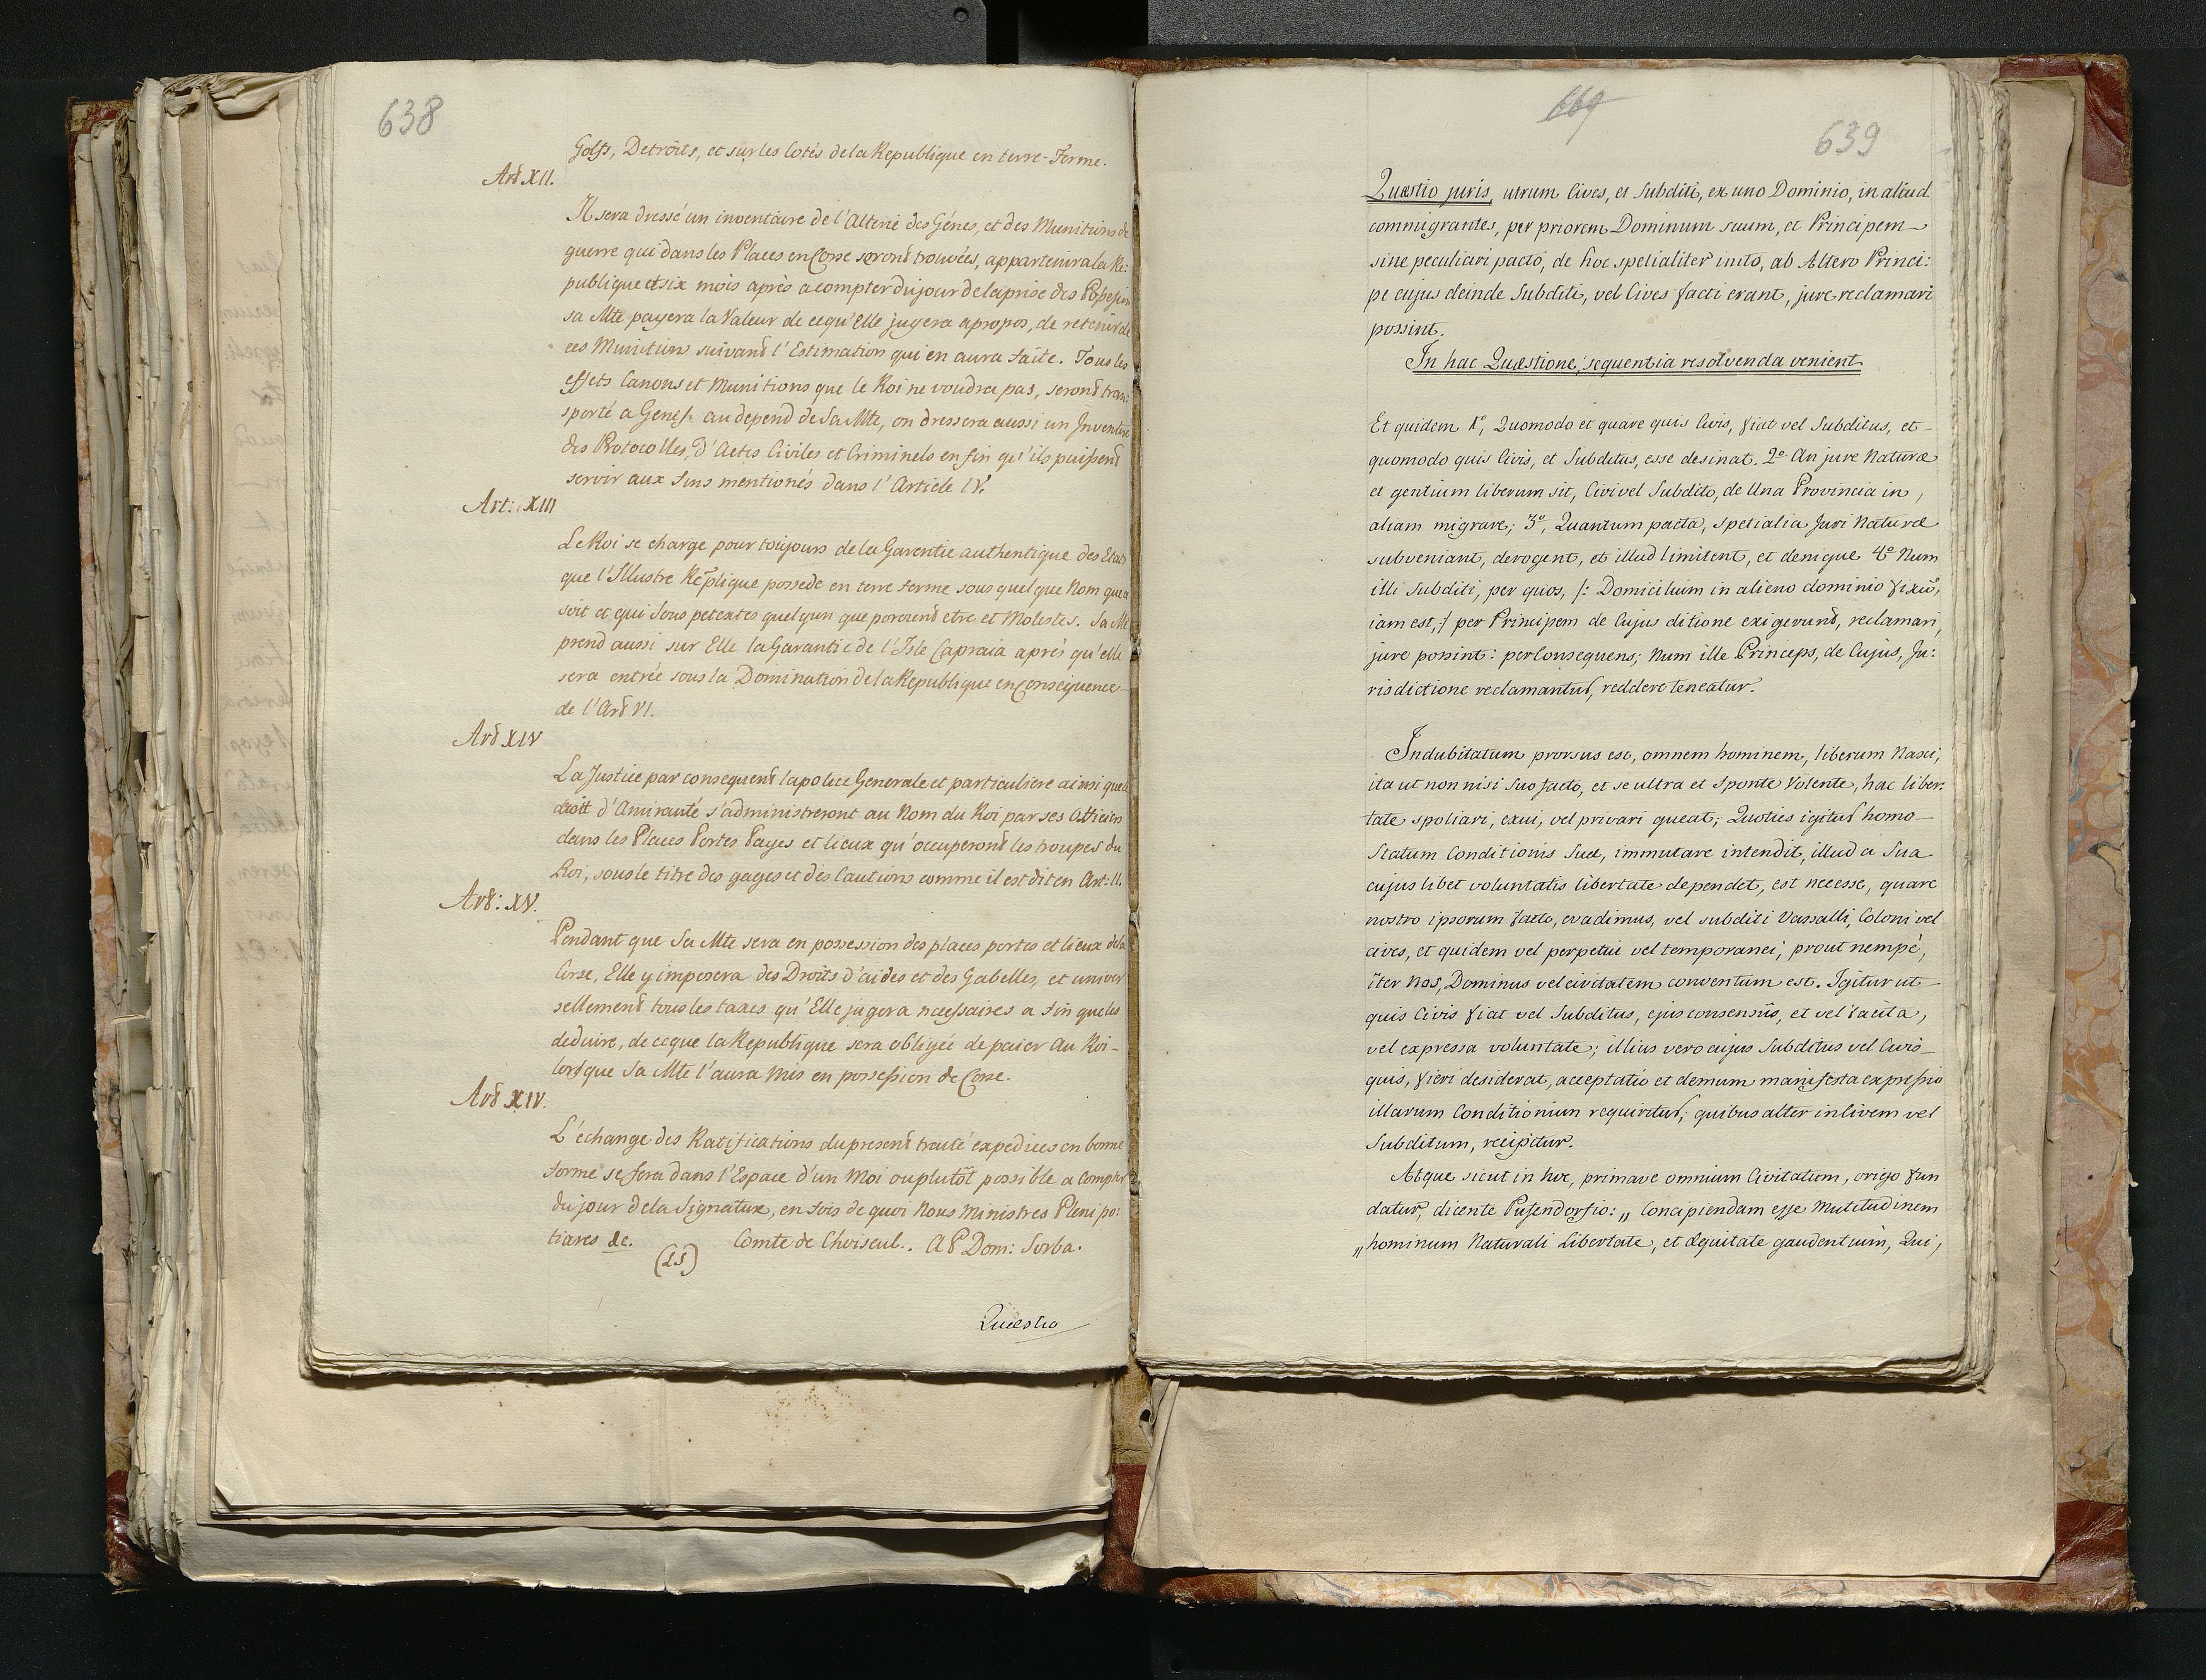 638
Golfs, Detroits, et sur les Cotés de la Republique en terre-Ferme.
Art XII.
Il sera dressé un inventaire de l'Alterie des Génes, et des Munitions de
guerre qui dans les Places en Corse seront trouvées, appartenir a la Re:
publique et six mois après a compter du jour de la prise des Possession
sa Mte payera la Valeur de ce qu'Elle jugera apropos, de retenir de
ces Munitions suivant l'Estimation qui en aura faite. Tous les
effets Canons et Munitions que le Roi ne voudra pas, seront tran:
sporté a Genes au depend de Sa Mte, on dressera aussi un Inventire
des Protocolles, d'Actes Civiles et Criminels en fin qu'ils puissent
servir aux fins mentionés dans l'Article IV.
Art: XIII
Le Roi se charge pour toujours de la Garentie authentique des Etats
que l'Illustre Replique possede en terre ferme sous quelque Nom que ce
soit et qui sous petextes quelqun que poroient etre et Molestes. Sa Mte
prend aussi sur Elle la Garantie de l'Isle Capraia après qu'elle
sera entrée sous la Domination de la Republique en Consequence
de l'Art VI.
Art XIV
La Justice par consequent la police Generale et particuliere ainsi que le
droit d'Amirauté s'administreront au Nom du Roi par ses Officiers
dans les Places Portes Payes et lieux qu'occuperont les troupes du
Roi, sous le titre des gages et des Cautions comme il est dit en Art: II.
Art: XV.
Pendant que Sa Mte sera en possession des places portes et lieux de la
Corse, Elle y imposera des Droits d'aides et des Gabelles, et univer
sellement tous les taxes qu'Elle jugera necessaires a fin que les
deduire, de ce que la Republique sera obligée de paier au Roi-
lorsque Sa Mte l'aura mis en possession de Corse.
Art XIV.
L'echange des Ratifications du present traité expediees en bonne
forme se fera dans l'Espace d'un Moi ou plutôt possible a compter
du jour de la Signature, en fois de quoi Nous Ministres Plenipo:
tiares &c. Comte de Choiseul. A P Dom: Sorba.
(LS)
Quaestio
669
639
Quaestio juris, utrum Cives, et Subditi, ex uno Dominio, in aliud
commigrantes, per priorem Dominum suum, et Principem
sine peculiari pacto, de hoc spetialiter inito, ab Altero Princi:
pe cujus deinde Subditi, vel Cives facti erant, jure reclamari
possint.
In hac Quaestione, sequentia resolvenda venient
Et quidem 1º, Quomodo et quare quis Civis, fiat vel Subditus, et
quomodo quis Civis, et Subditus, esse desinat. 2º An jure Naturae
et gentium liberum sit, Civi vel Subdito, de Una Provincia in,
aliam migrare; 3º, Quantum pacta, spetialia Juri Naturae
subveniant, derogent, et illud limitent, et denique 4º Num
illi Subditi, per quos, /: Domicilium in alieno dominio fixũ,
iam est, :/ per Principem de Cujus ditione exigerunt, reclamari,
jure possint: per Consequens; Num ille Princeps, de Cujus, Ju:
risdictione reclamantur, reddere teneatur.
Indubitatum prorsus est, omnem hominem, liberum Nasci,
ita ut non nisi Suo facto, et se ultra et Sponte Volente, hac liber:
tate spoliari, exui, vel privari queat; Quoties igitur homo
Statum Conditionis Suae, immutare intendit, illud a Sua
cujus libet voluntatis libertate dependet, est necesse, quare
nostro ipsorum facto, evadimus, vel subditi Vassalli, Coloni vel
cives, et quidem vel perpetui vel temporanei, prout nempè,
iter Nos, Dominus vel civitatem conventum est. Igitur ut
quis Civis fiat vel Subditus, ejus consensûs, et vel tacita,
vel expressa voluntate; illius vero cujus Subditus vel Civis
quis, fieri desiderat, acceptatio et demum manifesta expressio
illarum Conditionum requiritur, quibus alter in Civem vel
Subditum, recipitur.
Atque sicut in hoc, primave omnium Civitatum, origo fun
datur, dicente Pufendorfio: „ Concipiendam esse Mutitudinem
„ hominum Naturali Libertate, et Aequitate gaudentium, Qui,